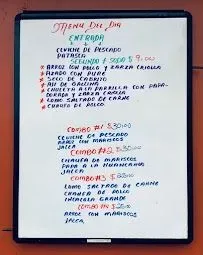 MENU DEL DIA
ENTRADA
CEVICHE DE PESCADO
PATASCA
SEGUNDO + SOPA $9.00
* ARROZ CON POLLO Y ZARZA CRIOLLA
* AZADO CON PURE
* SECO DE CABRITO
* AJI DE GALLINA
* CHULETA A LA PARRILLA CON PAPA
DORADA Y ZARZA CRIOLLA
* LOMO SALTADO DE CARNE
* CHAUFA DE POLLO
COMBO #1 $30.00
CEVICHE DE PESCADO
ARROZ CON MARISCOS
JALEA
COMBO #2 $30.00
CHAUFA DE MARISCOS
PAPA A LA HUANCAINA
JALEA
COMBO #3
LOMO SALTADO DE CARNE
CHAUFA DE POLLO
INCACOLA GRANDE
COMBO
ARROZ CON MARISCOS
JALEA